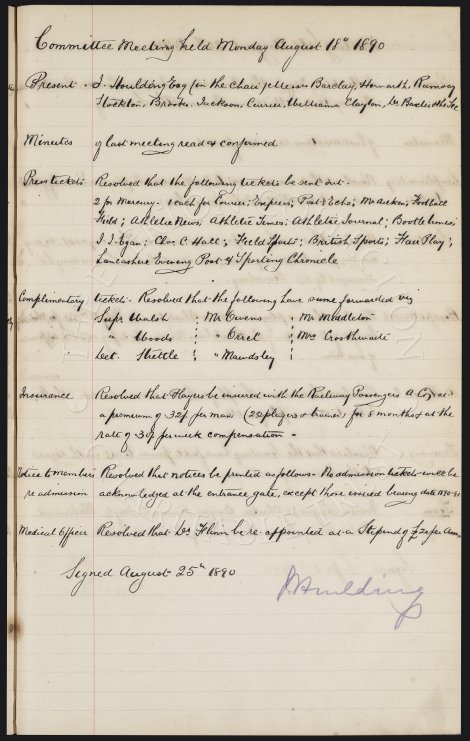 Committee Meeting held Monday August 18th 1890
Present - J. Houlding Esq (in the chair) Messrs Barclay, Howarth, Ramsay
Stockton, Brooks, Jackson, Currier, Williams, Clayton, Dr Baxter & the Sec
Minutes of last meeting read & confirmed
Press tickets Resolved that the following tickets be sent out -
2 for Mercury - 1 each for Courier; Express; Post; Echo; Mr Aitken; Football
Field; Athletic News; Athletic Times; Athletic Journal; Bootle Times;
J. J. Egan; Chas C. Hall; Field Sports; British Sports; Fair Play;
Lancashire Evening Post & Sporting Chronicle
Complimentary tickets - Resolved that the following have some forwarded viz
Supt Walsh ; Mr Owens ; Mr Middleton
" Woods ; " ; Mrs Crosthwaite
Det. Skittle ; " Mawdsley ;
Insurance Resolved that Players be insured with the Railway Passengers A. Coy at
a premium of 32/ per man (22 players & trainer) for 8 months & at the
rate of 30/ per week compensation -
Notice to members Resolved that notices be printed as follows - No admission tickets will be
re admission acknowledged at the entrance gate, except those bearing date 1890-91
Medical Officer Resolved that Dr Flinn be re-appointed at a Stipend of £20 per Ann.
Signed August 25th 1890
J Houlding